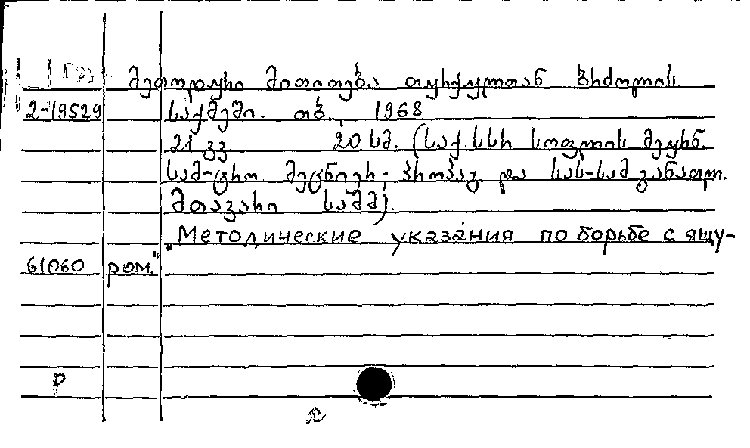 მეთოდური მითითება თურქულთან ბრძოლის
2-19529 საქმეში. თბ. 1968
21 გვ. 20 სმ. (საქ. სსრ სოფლის მეურნ.
სამ-ტრო მეცნიერ. პროპაგ. და სას-სამ განათლ.
მთავარი სამმ).
"Методические указания по борьбе с ящу-
61060 ром."
р